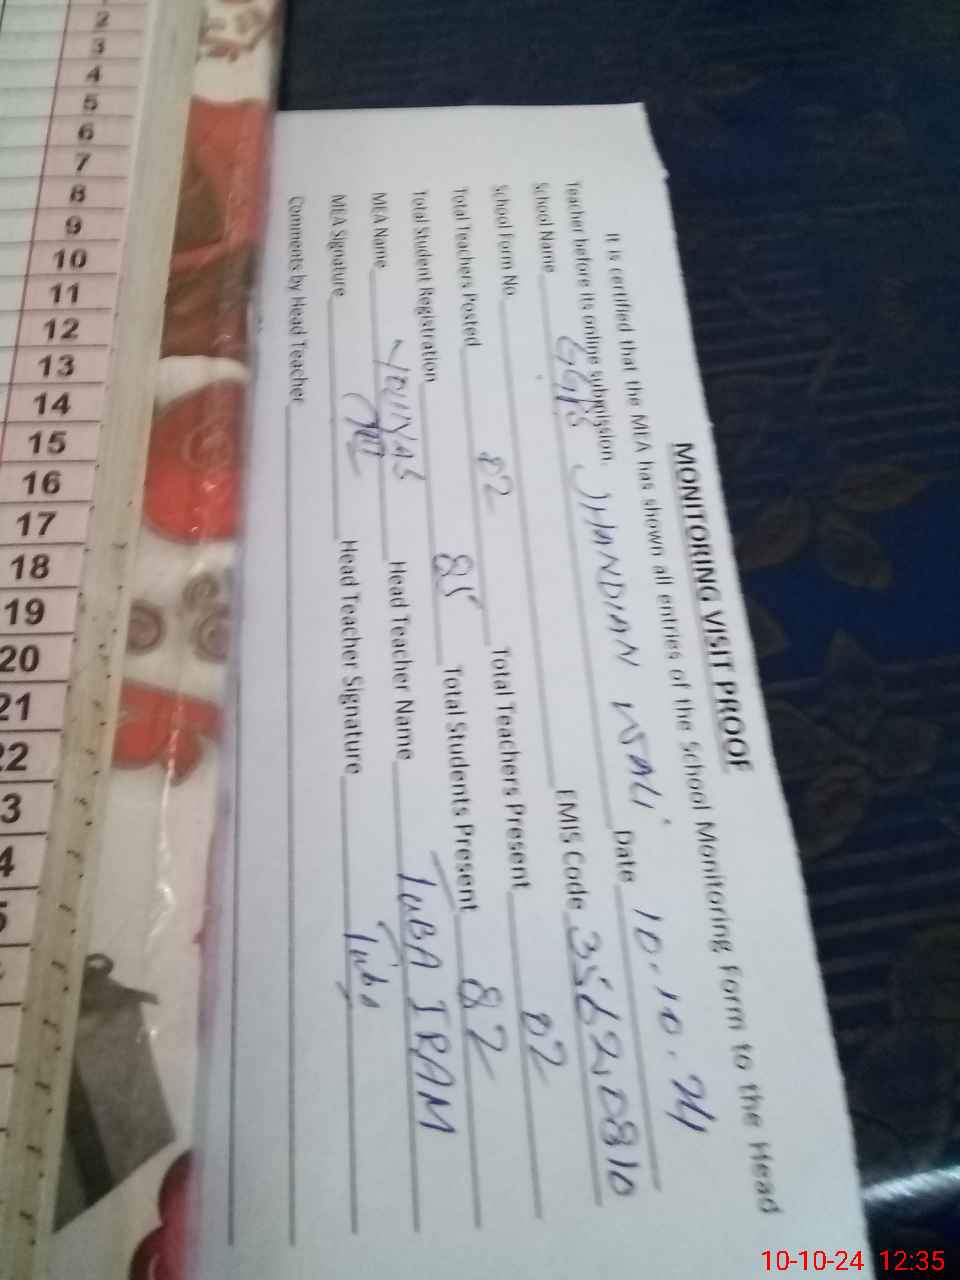 MONITORING VISIT PROOF
It is certified that the MEA has shown all entries of the School Monitoring Form to the Head
Teacher before its online submission.
School Name GGPS JHANDIAN WALI Date 10.10.24
School Form No. EMIS Code 35620810
Total Teachers Posted 02 Total Teachers Present 02
Total Student Registration 85 Total Students Present 82
MEA Name YOUNAS Head Teacher Name TuBA IRAM
MEA Signature Head Teacher Signature Tuba
Comments by Head Teacher
2
3
4
5
6
7
8
9
10
11
12
13
14
15
16
17
18
19
20
21
22
3
4
5
10-10-24 12:35